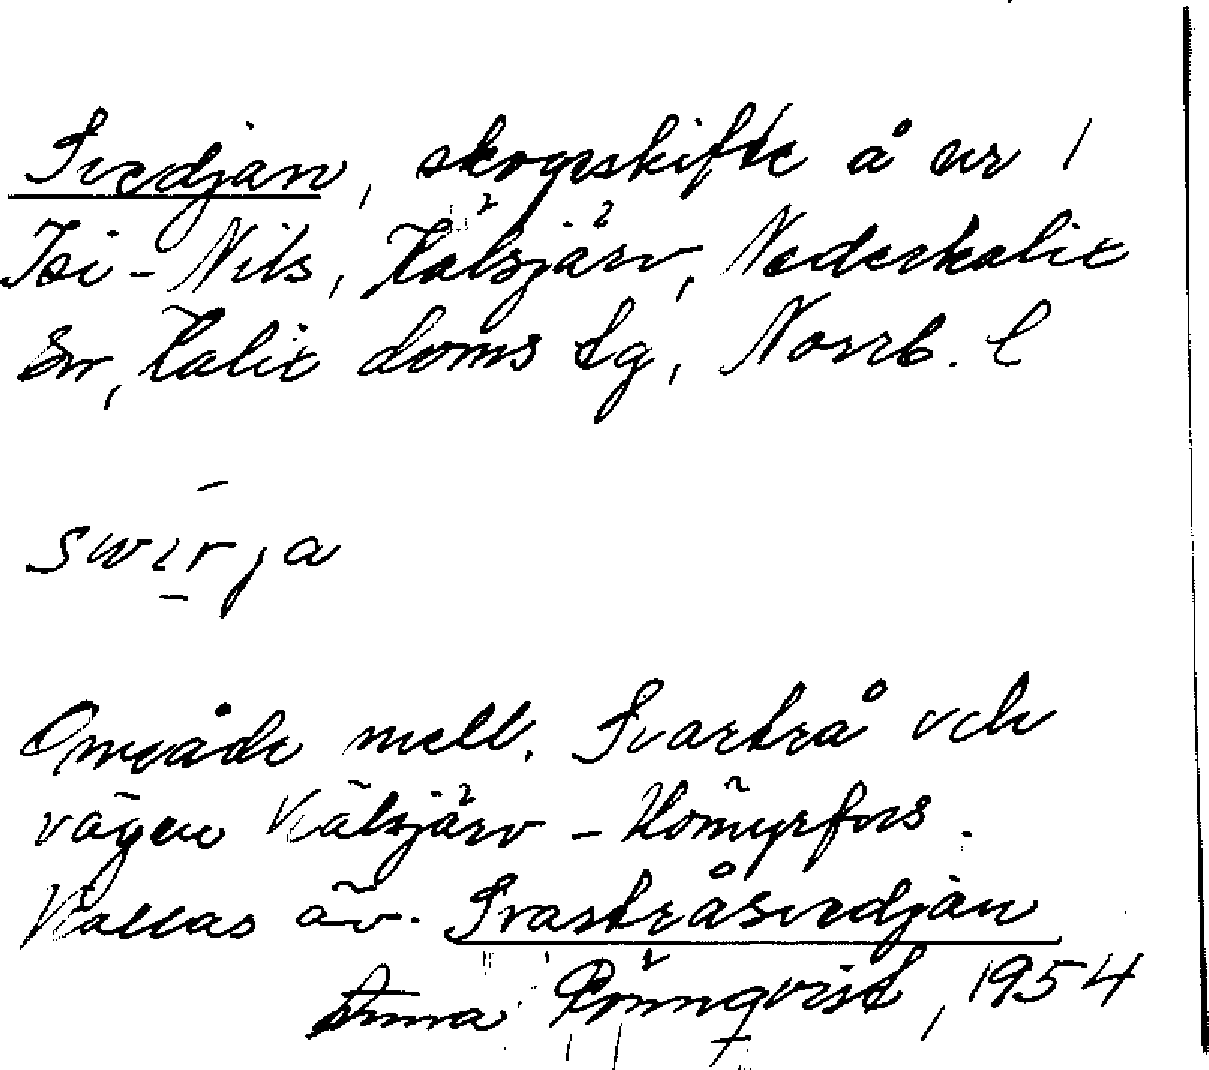 Svedjan, skogsskifte å nr 1
Isi-Nils, Kälsjärv, Nederkalix
sn, Kalix doms lg, Norrb. l
swirja
Område mell. Svartrå och
vägen Kälsjärv - Kömyrfors.
Kallas äv. Svartråsvedjan
Anna Rönnqvist, 1954